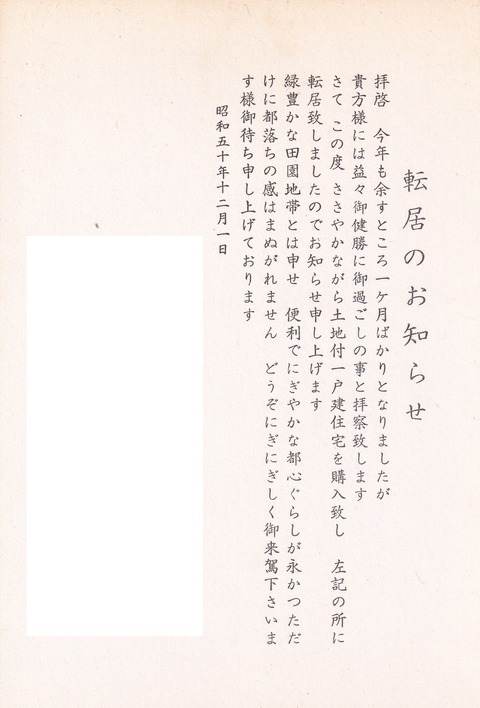 転居のお知らせ
拝啓　今年も余すところ一ケ月ばかりとなりましたが
貴方様には益々御健勝に御過ごしの事と拝察致します
さて　この度　ささやかながら土地付一戸建住宅を購入致し　左記の所に
転居致しましたのでお知らせ申し上げます
緑豊かな田園地帯とは申せ　便利でにぎやかな都心ぐらしが永かつただ
けに都落ちの感はまぬがれません　どうぞにぎにぎしく御来駕下さいま
す様御待ち申し上げております
昭和五十年十二月一日